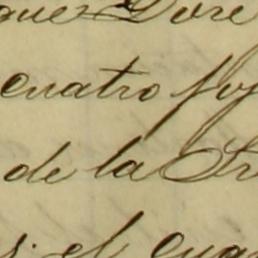 que Dore
cuatro fo
de la Tr
el cua